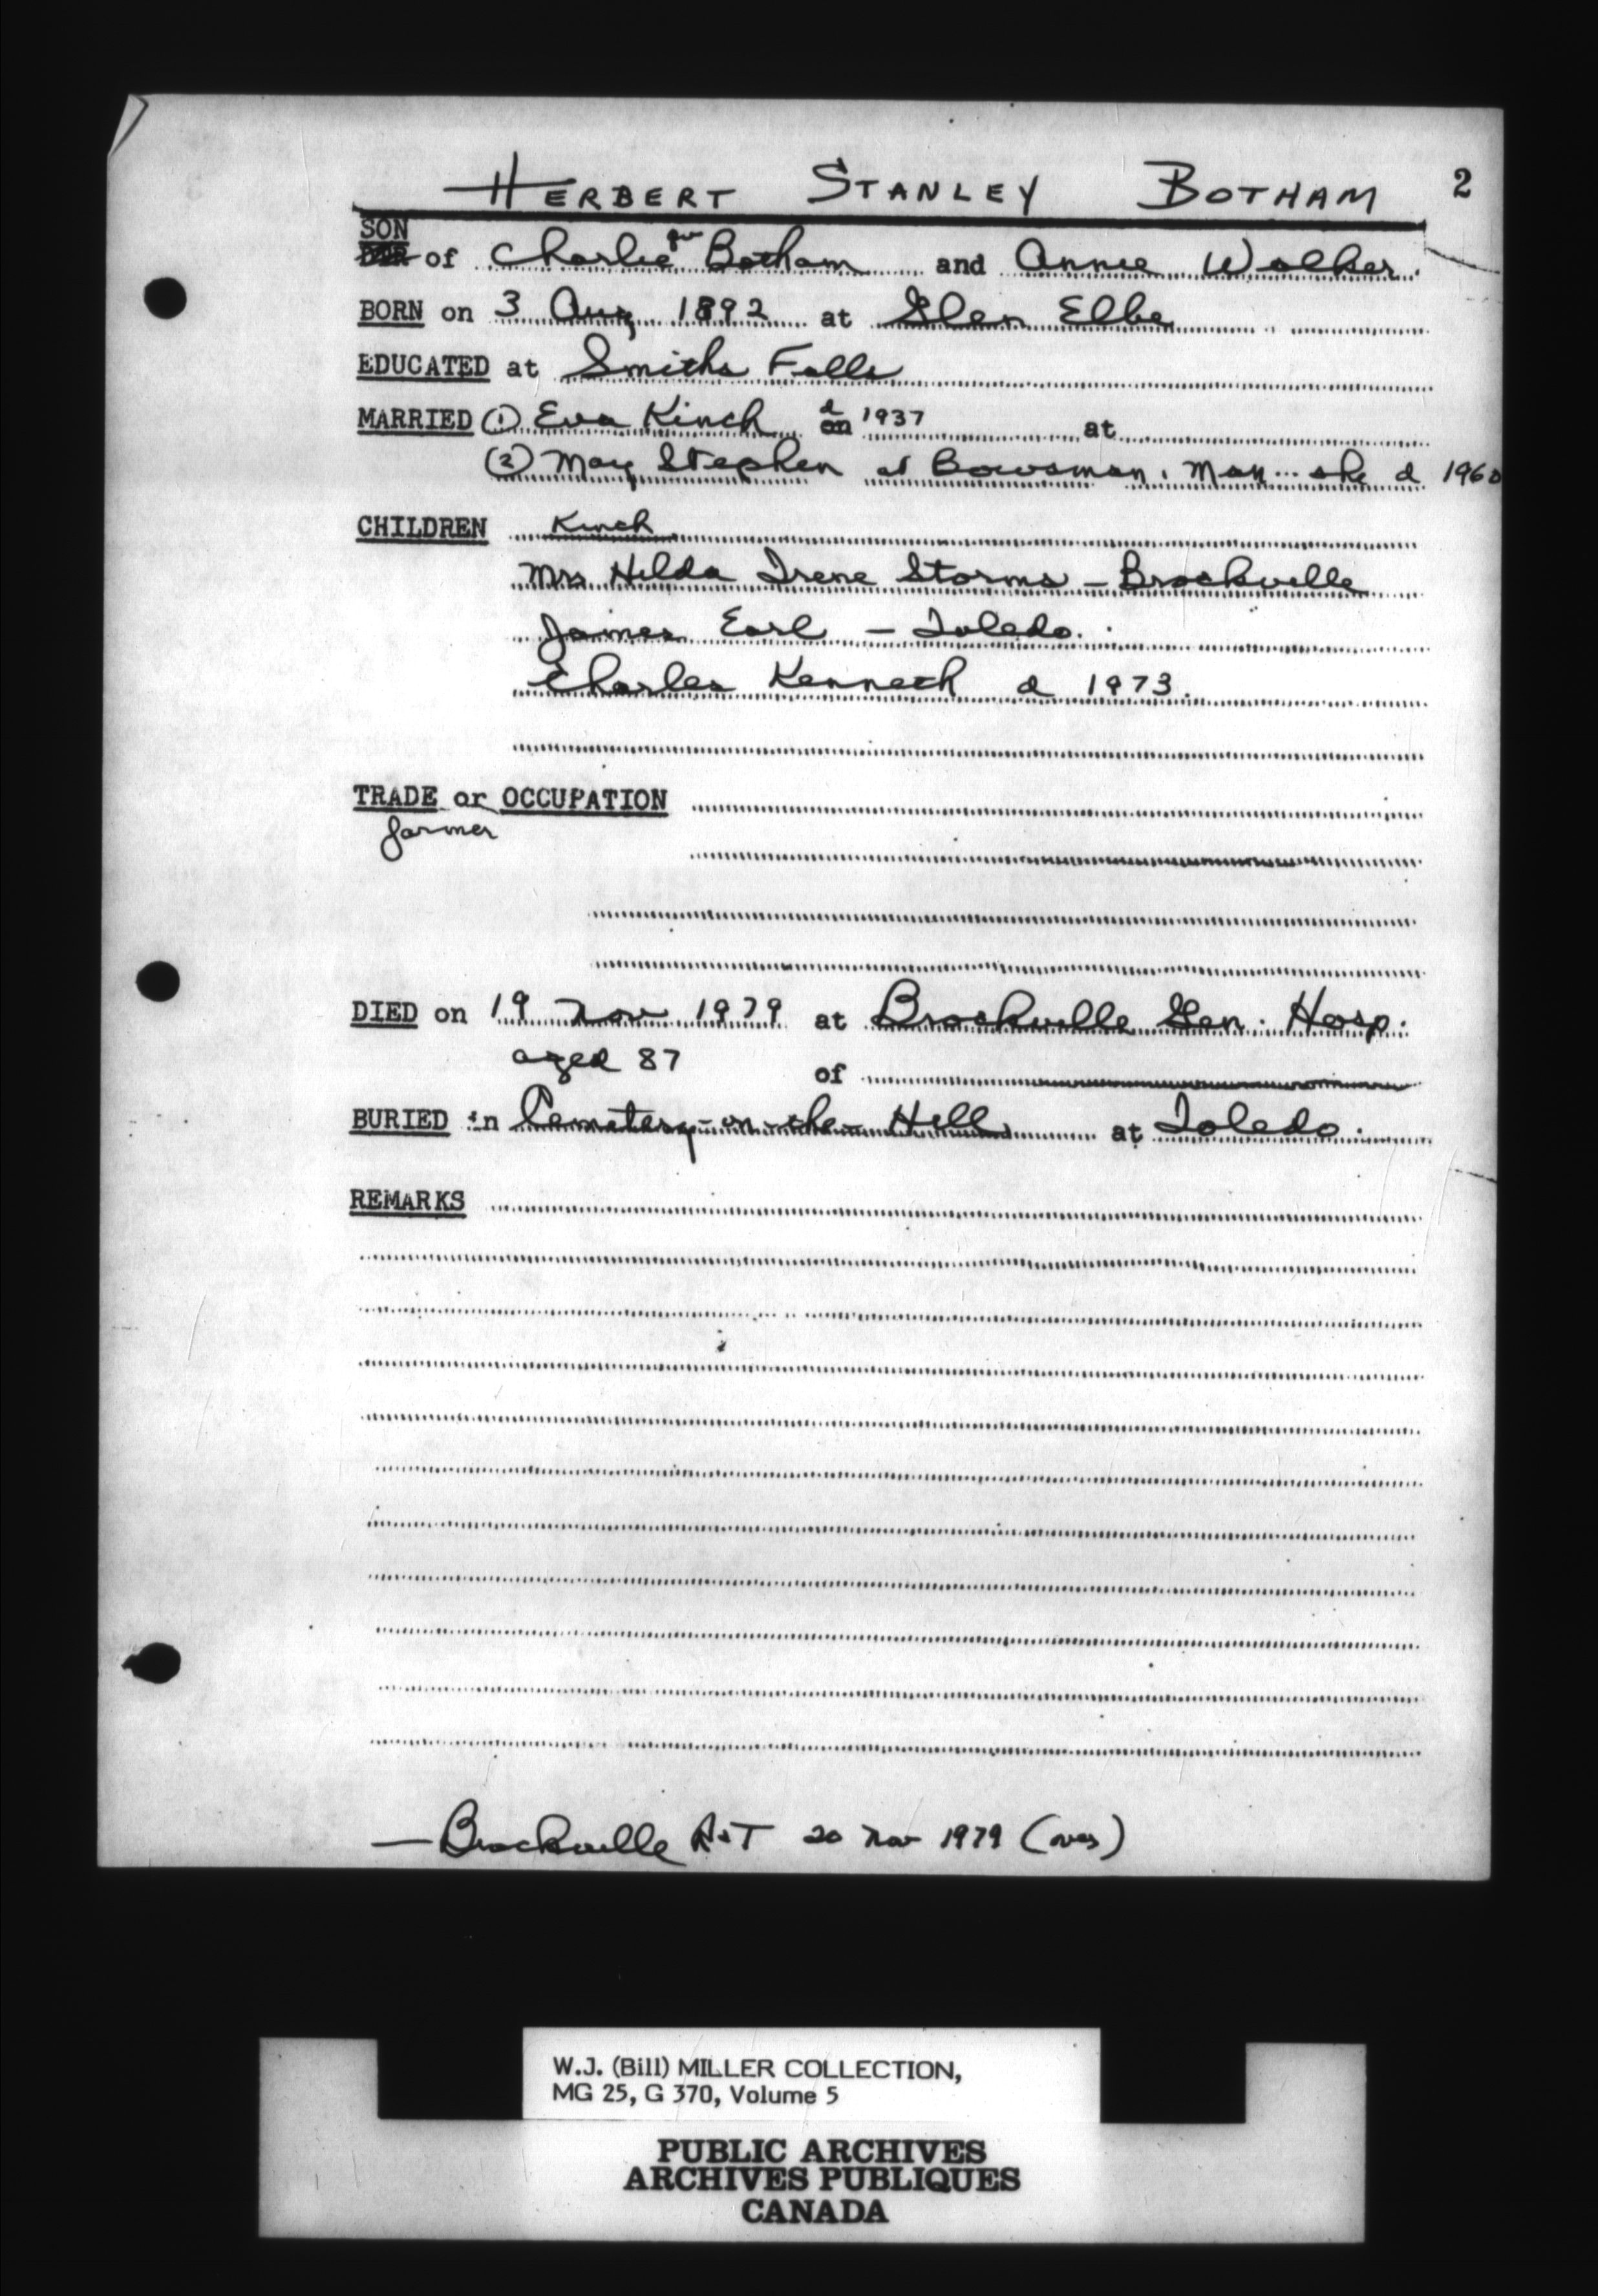 HERBERT STANLEY BOTHAM 2
SON
of Charlie Botham and Annie Walker.
BORN on 3 Aug 1892 at Glen Elbe
EDUCATED at Smiths Falls
MARRIED (1) Eva Kinch d on 1937 at
(2) May Stephen at Bowsman, Man. she d 1960
CHILDREN Kinch
Mrs Hilda Irene Storms - Brockville
James Earl - Toledo.
Charles Kenneth d 1973.
TRADE or OCCUPATION
farmer
DIED on 19 Nov 1979 at Brockville Gen. Hosp.
aged 87 of
BURIED in Cemetery-on-the-Hill at Toledo.
REMARKS
— Brockville R&T 20 Nov 1979
W.J. (Bill) MILLER COLLECTION,
MG 25, G 370, Volume 5
PUBLIC ARCHIVES
ARCHIVES PUBLIQUES
CANADA